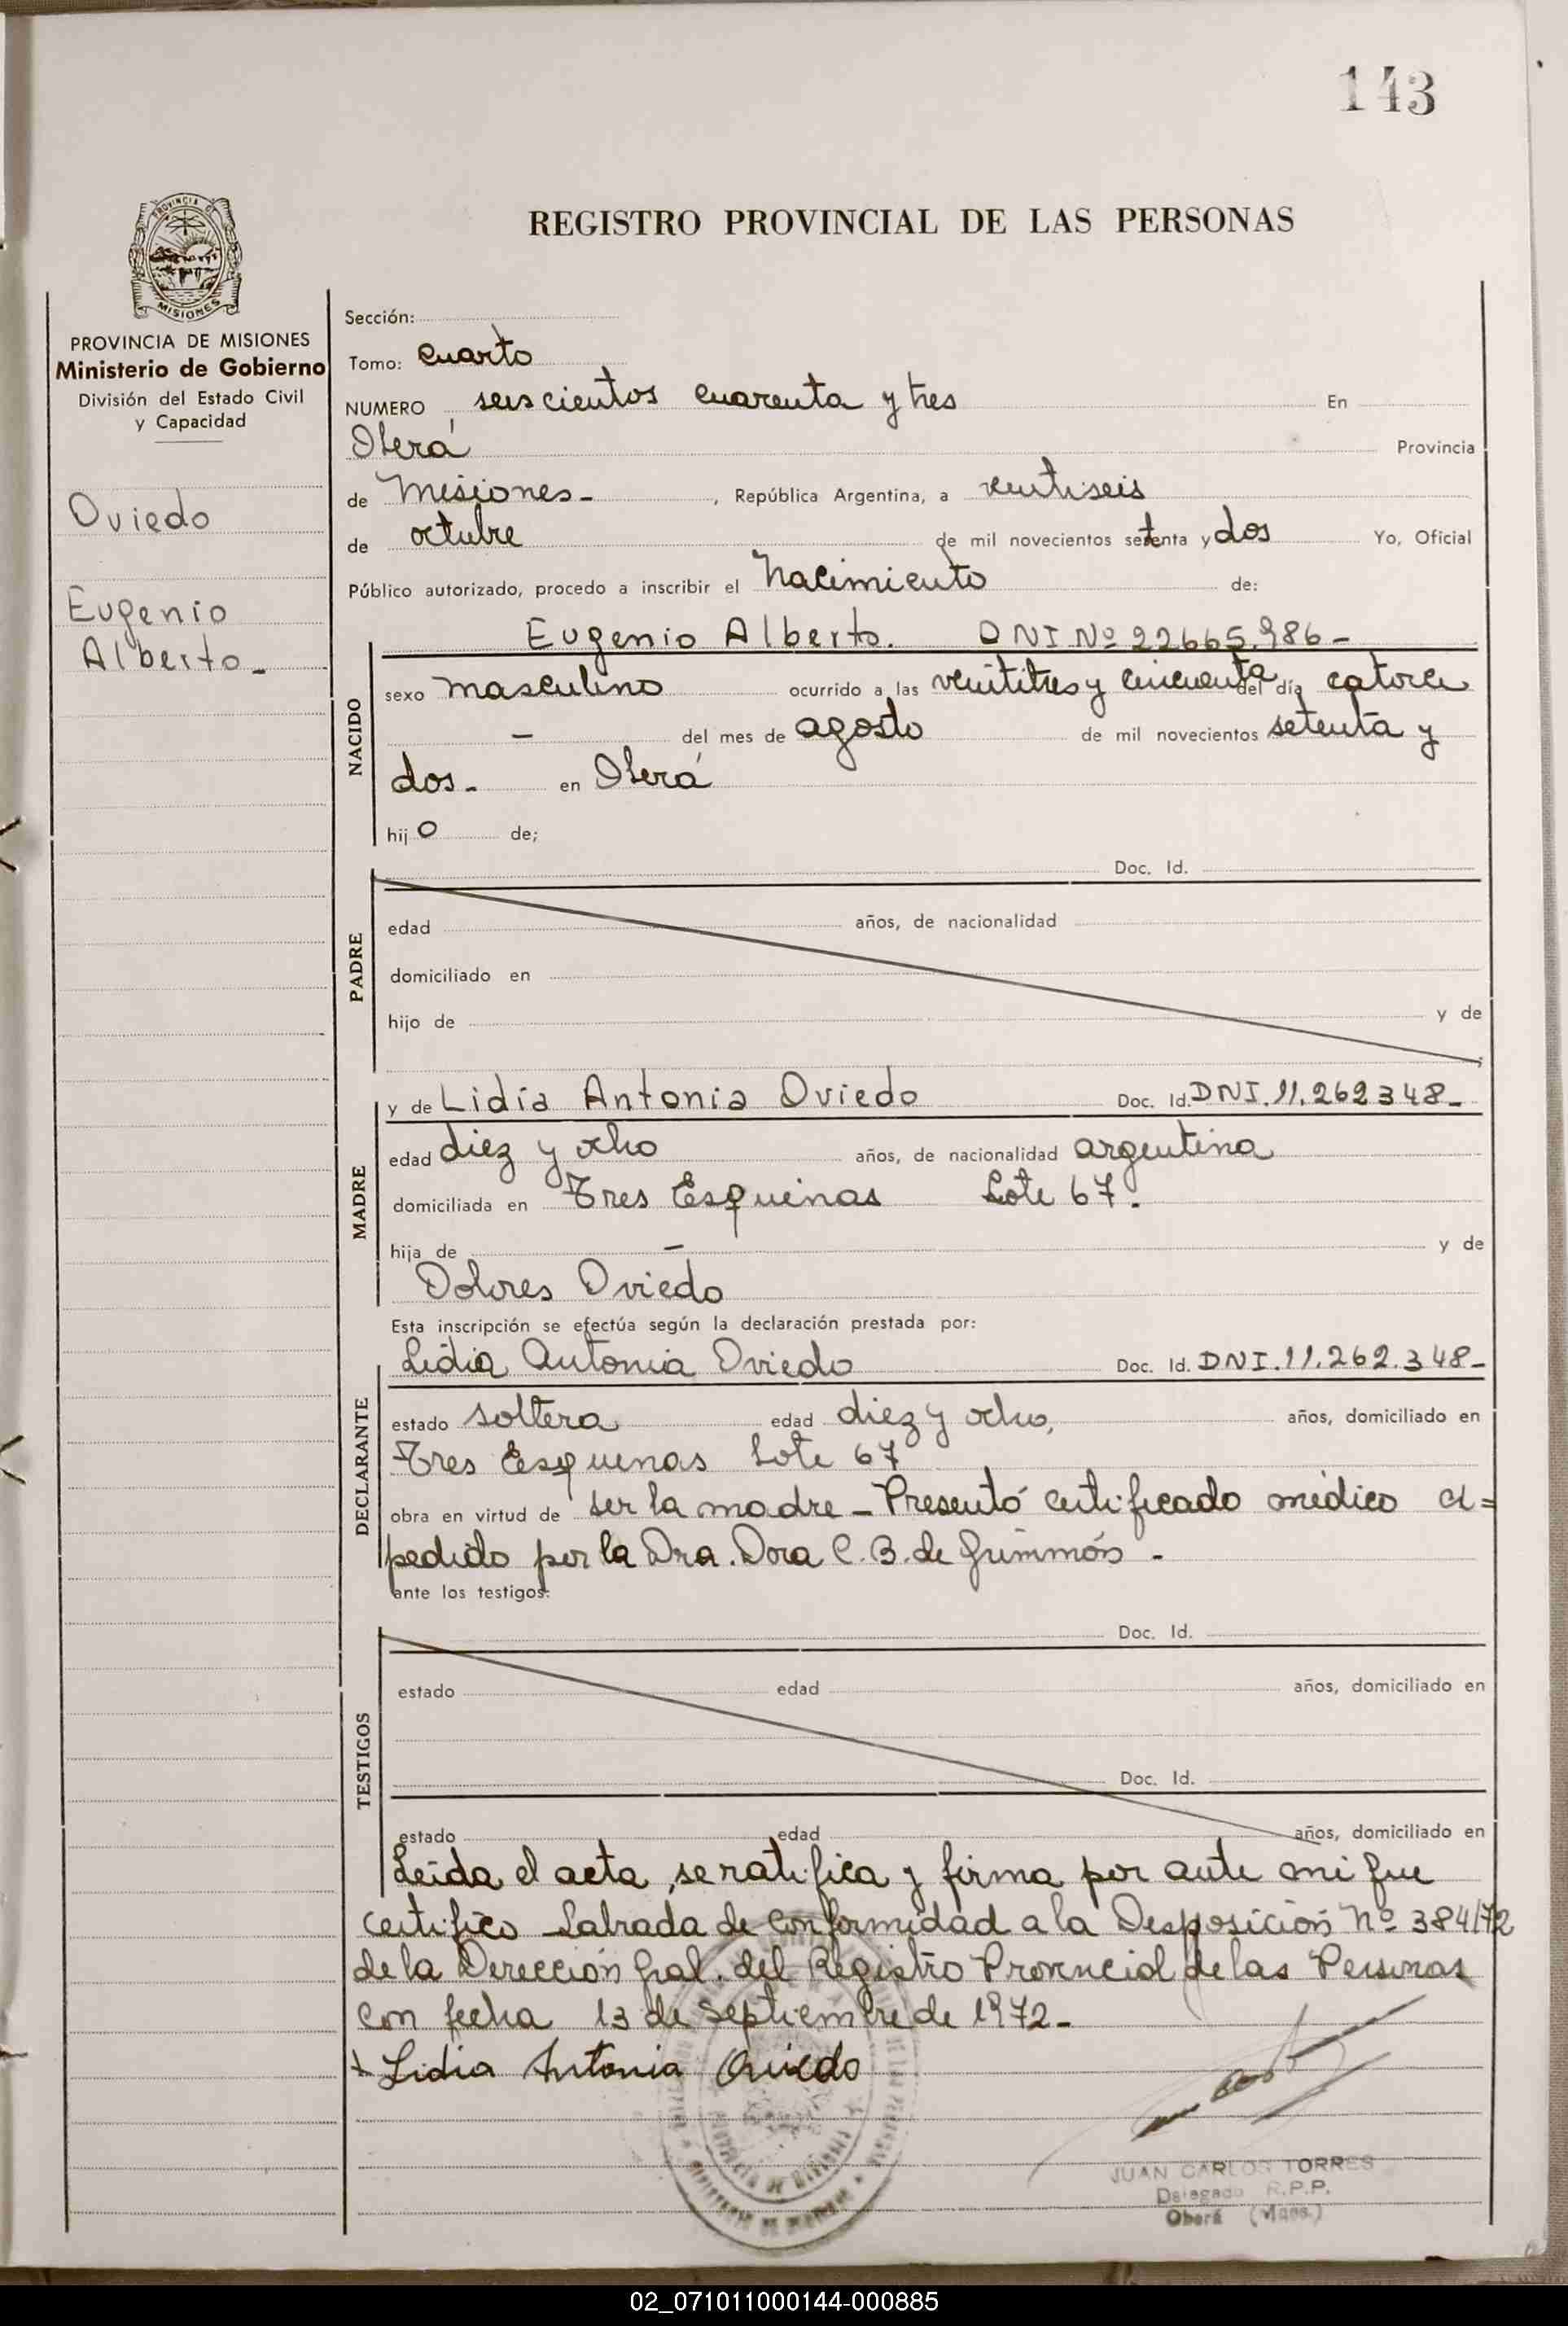 143
PROVINCIA DE
MISIONES
REGISTRO PROVINCIAL DE LAS PERSONAS
PROVINCIA DE MISIONES
Ministerio de Gobierno
División del Estado Civil
y Capacidad
Oviedo
Eugenio
Alberto.-
Sección:
Tomo: Cuarto
NUMERO seiscientos cuarenta y tres En
Oberá Provincia
de Misiones- , República Argentina, a veintiseis
de octubre de mil novecientos setenta y dos Yo, Oficial
Público autorizado, procedo a inscribir el Nacimiento de:
Eugenio Alberto. DNI Nº 22665.986-
NACIDO
sexo masculino ocurrido a las veintitres y cincuenta del día catorce
- del mes de agosto de mil novecientos setenta y
dos.- en Oberá
hij o de;
PADRE
Doc. Id.
edad años, de nacionalidad
domiciliado en
hijo de y de
MADRE
y de Lidia Antonia Oviedo Doc. Id. DNI.11.262348-
edad diez y ocho años, de nacionalidad argentina
domiciliada en Tres Esquinas Lote 67.-
hija de - y de
Dolores Oviedo
Esta inscripción se efectúa según la declaración prestada por:
DECLARANTE
Lidia Antonia Oviedo Doc. Id. DNI.11.262.348-
estado soltera edad diez y ocho, años, domiciliado en
Tres Esquinas Lote 67
obra en virtud de ser la madre - Presentó certificado médico
pedido por la Dra. Dora C. B. de
ante los testigos:
TESTIGOS
Doc. Id.
estado edad años, domiciliado en
Doc. Id.
estado edad años, domiciliado en
Leída el acta, se ratifica y firma por ante mi que
certifico Labrada de conformidad a la Disposición Nº 384/72
de la Dirección Gral. del Registro Provincial de las Personas
con fecha 13 de septiembre de 1972.-
+ Lidia Antonia Oviedo
JUAN CARLOS TORRES
Delegado R.P.P.
Oberá (Mnes.)
02_071011000144-000885